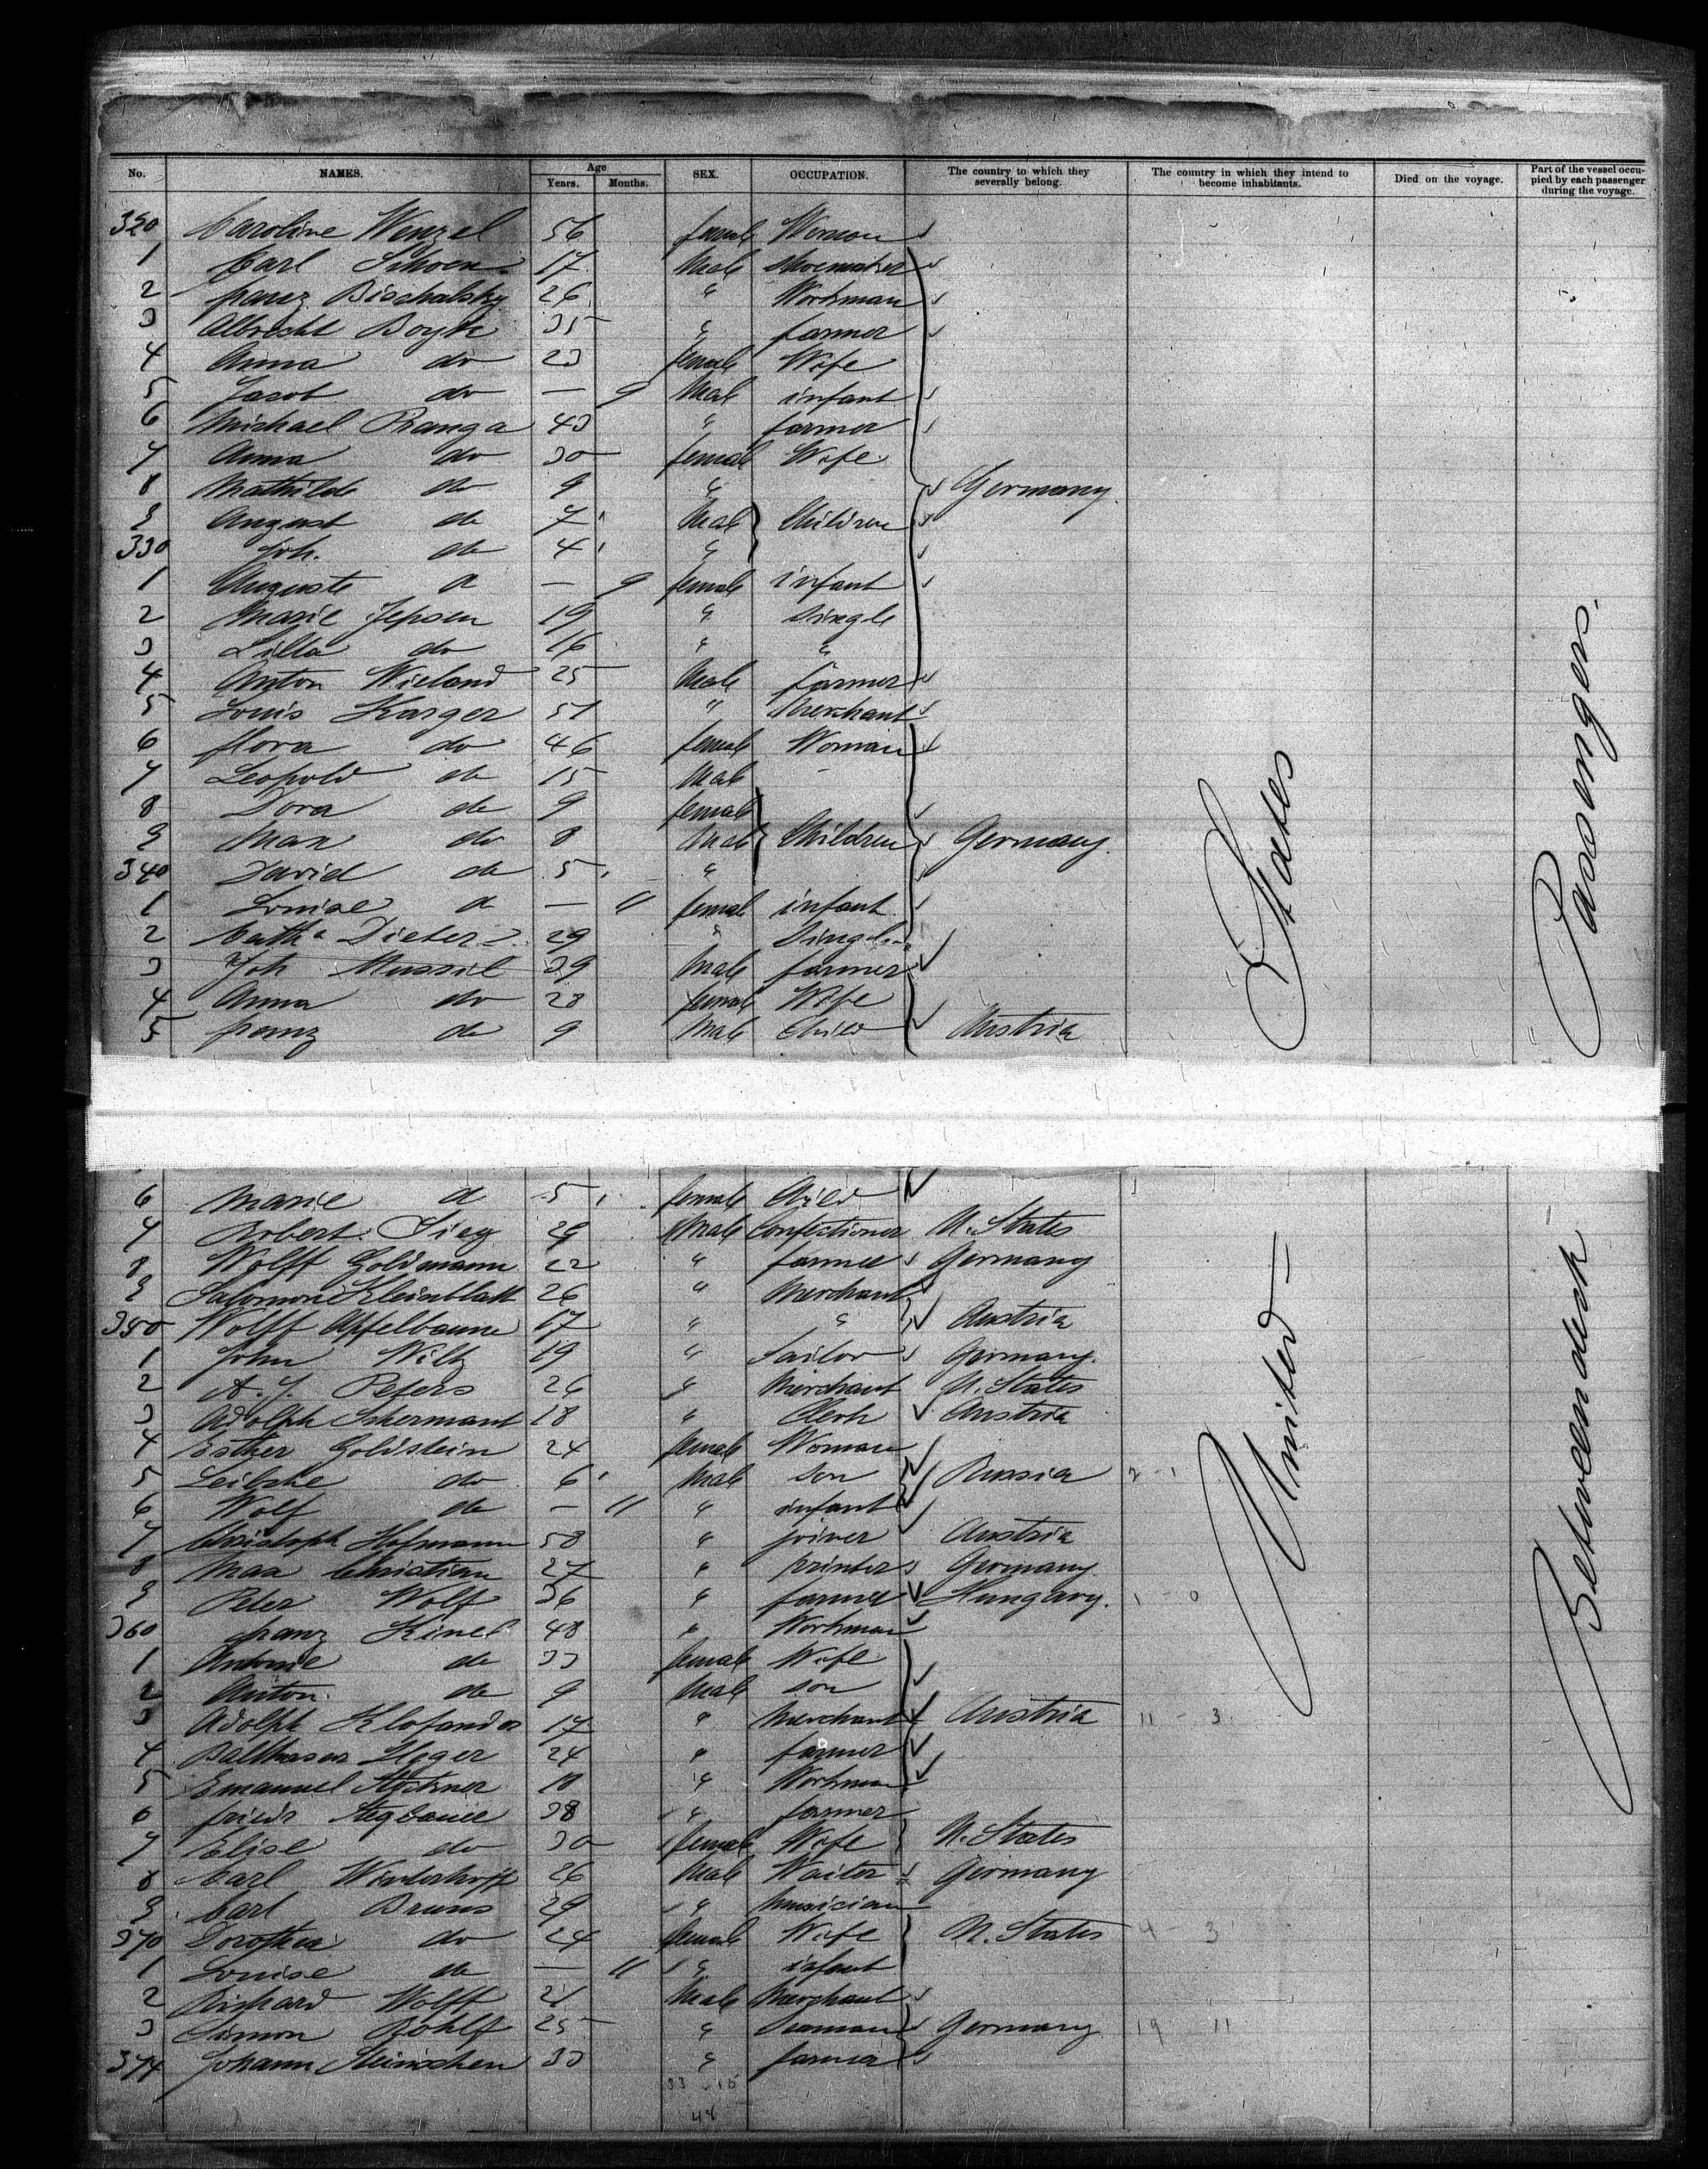 No. NAMES. Age Years. Months. SEX. OCCUPATION. The country to which they severally belong. The country in which they intend to become inhabitants. Died on the voyage. Part of the vessel occupied by each passenger during the voyage.
320 Caroline Wenzel 56 female Woman
1 Carl Schoen 17 Male Shoemaker
2 franz 26 " Workman
3 Albrecht 35 " farmer
4 Anna do 23 female Wife
5 Jacob do — 9 Male infant
6 Michael Ranga 43 " farmer
7 Anna do 30 female Wife
8 Mathilde do 9 " Germany.
9 August do 7 Male Children
330 Joh. do 4 "
1 Auguste d — 9 female infant
2 Marie Jepsen 19 " Single
3 Lilla do 16 " "
4 Anton Wieland 25 Male farmer
5 Louis Karger 51 " Merchant
6 flora do 46 female Woman
7 Leopold do 15 Male
8 Dora do 9 female
9 Max do 8 Male Children Germany.
340 David do 5 "
1 Louise d — 11 female infant
2 Cath a Dieter 29 " Single
3 Joh Mussil 39 Male farmer
4 Anna do 28 female Wife
5 franz do 9 Male Child Austria
6 Marie d 5 female Child
7 Robert Sieg 29 Male Confectioner U. States
8 Wolff Goldmann 22 " farmer Germany
9 Salomon Kleinblatt 26 " Merchant
350 Wolff Apfelbaum 17 " " Austria
1 John Wiltz 19 " Sailor Germany.
2 A. J. Peters 26 " Merchant U. States
3 Adolph 18 " Clerk Austria
4 Esther Goldstein 24 female Woman
5 Leibche do 6 Male son Russia 2 - 1
6 Wolf do — 11 " infant
7 Christoph Hofmann 58 " joiner Austria
8 Max Christian 27 " printer Germany.
9 Peter Wolf 36 " farmer Hungary. 1 - 0
360 franz Kinel 48 " Workman
1 Antonie do 33 female Wife
2 Anton do 9 Male son
3 Adolph 17 " Merchant Austria 11 - 3
4 Balthasar 24 " farmer
5 Emanuel 18 " Workman
6 friedr Stegbauer 38 " farmer
7 Elise do 30 female Wife U. States
8 Carl Winterhoff 26 Male Waiter Germany
9 Carl Bruns 29 " Musician
370 Dorothea do 24 female Wife U. States 4 - 3
1 Louise do — 11 " infant
2 Richard Wolff 21 Male Merchant
3 Simon Rohlff 25 " Seaman Germany 19 11
374 Johann Steinschen 33 " farmer
33 - 15
48
United States
Betweendeck Passengers.